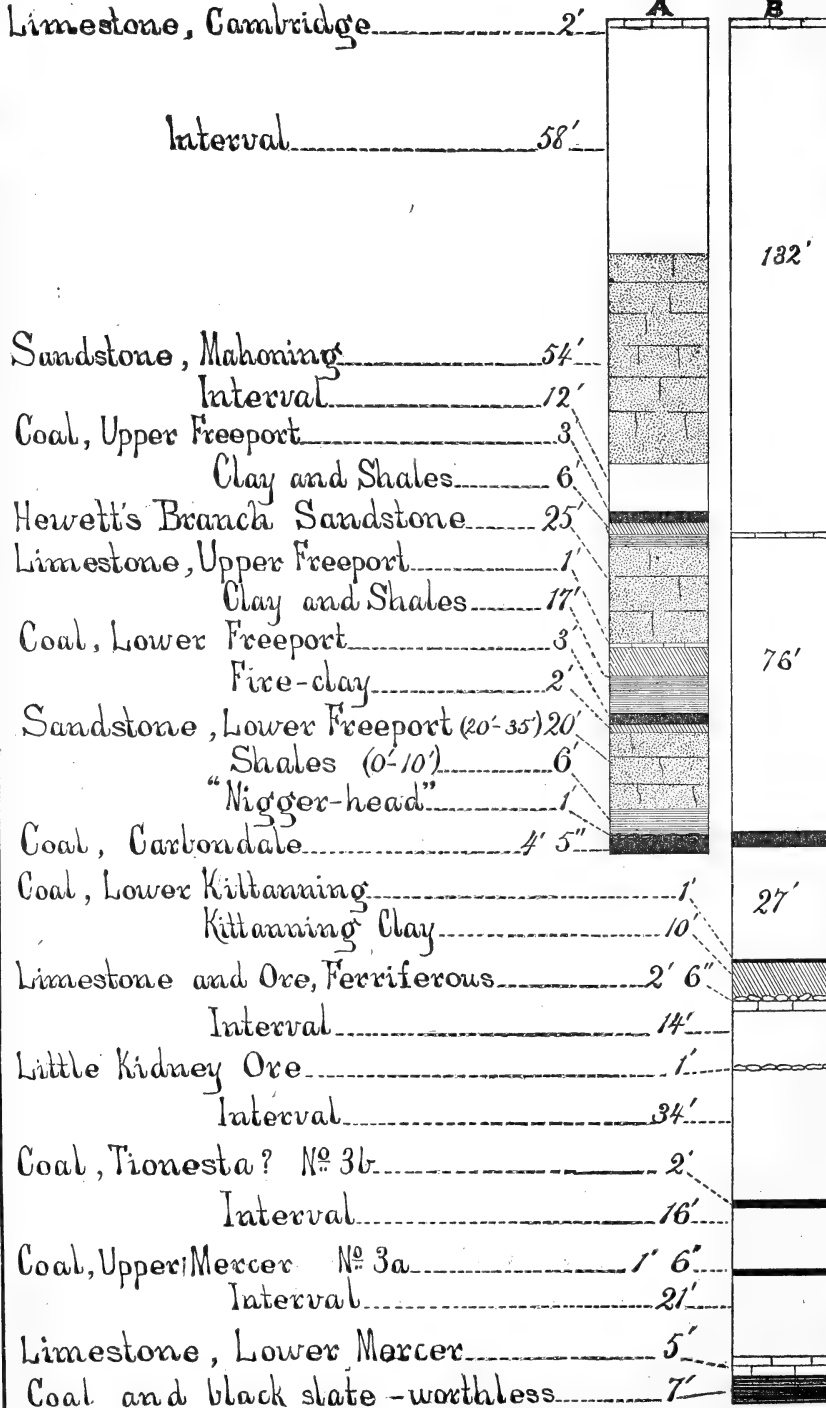 A B
Limestone, Cambridge 2'
Interval 58'
132'
Sandstone, Mahoning 54'
Interval 12'
Coal, Upper Freeport 3
Clay and Shales 6'
Hewett's Branch Sandstone 25'
Limestone, Upper Freeport 1'
Clay and Shales 17'
Coal, Lower Freeport 3'
76'
Fire-clay 2'
Sandstone, Lower Freeport (20'-35') 20'
Shales (0'-10') 6'
"Nigger-head" 1'
Coal, Carbondale 4' 5"
Coal, Lower Kittanning 1'
27'
Kittanning Clay 10'
Limestone and Ore, Ferriferous 2' 6"
Interval 14'
Little Kidney Ore 1'
Interval 34'
Coal, Tionesta? Nº 3b 2'
Interval 16'
Coal, Upper Mercer Nº 3a 1' 6"
Interval 21'
Limestone, Lower Mercer 5'
Coal and black slate - worthless 7'